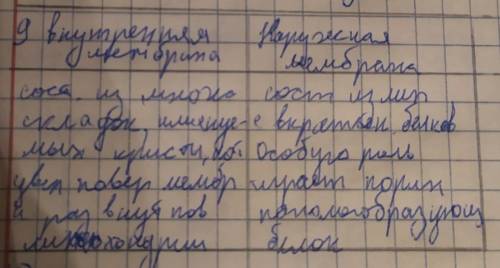 9 внутренняя Наружная
мембрана мембрана
сост. из множ сост из лип
складок, именуе- с вкраплен, белков
мых кристи, Особую роль
увел повер мембр играет порин
внут пов каналообразующ
митохондрии белок